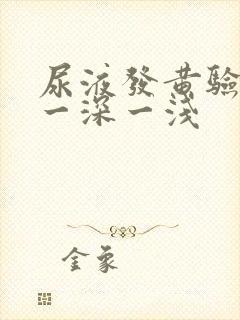 尿液發黃驗
一深一淺
金象